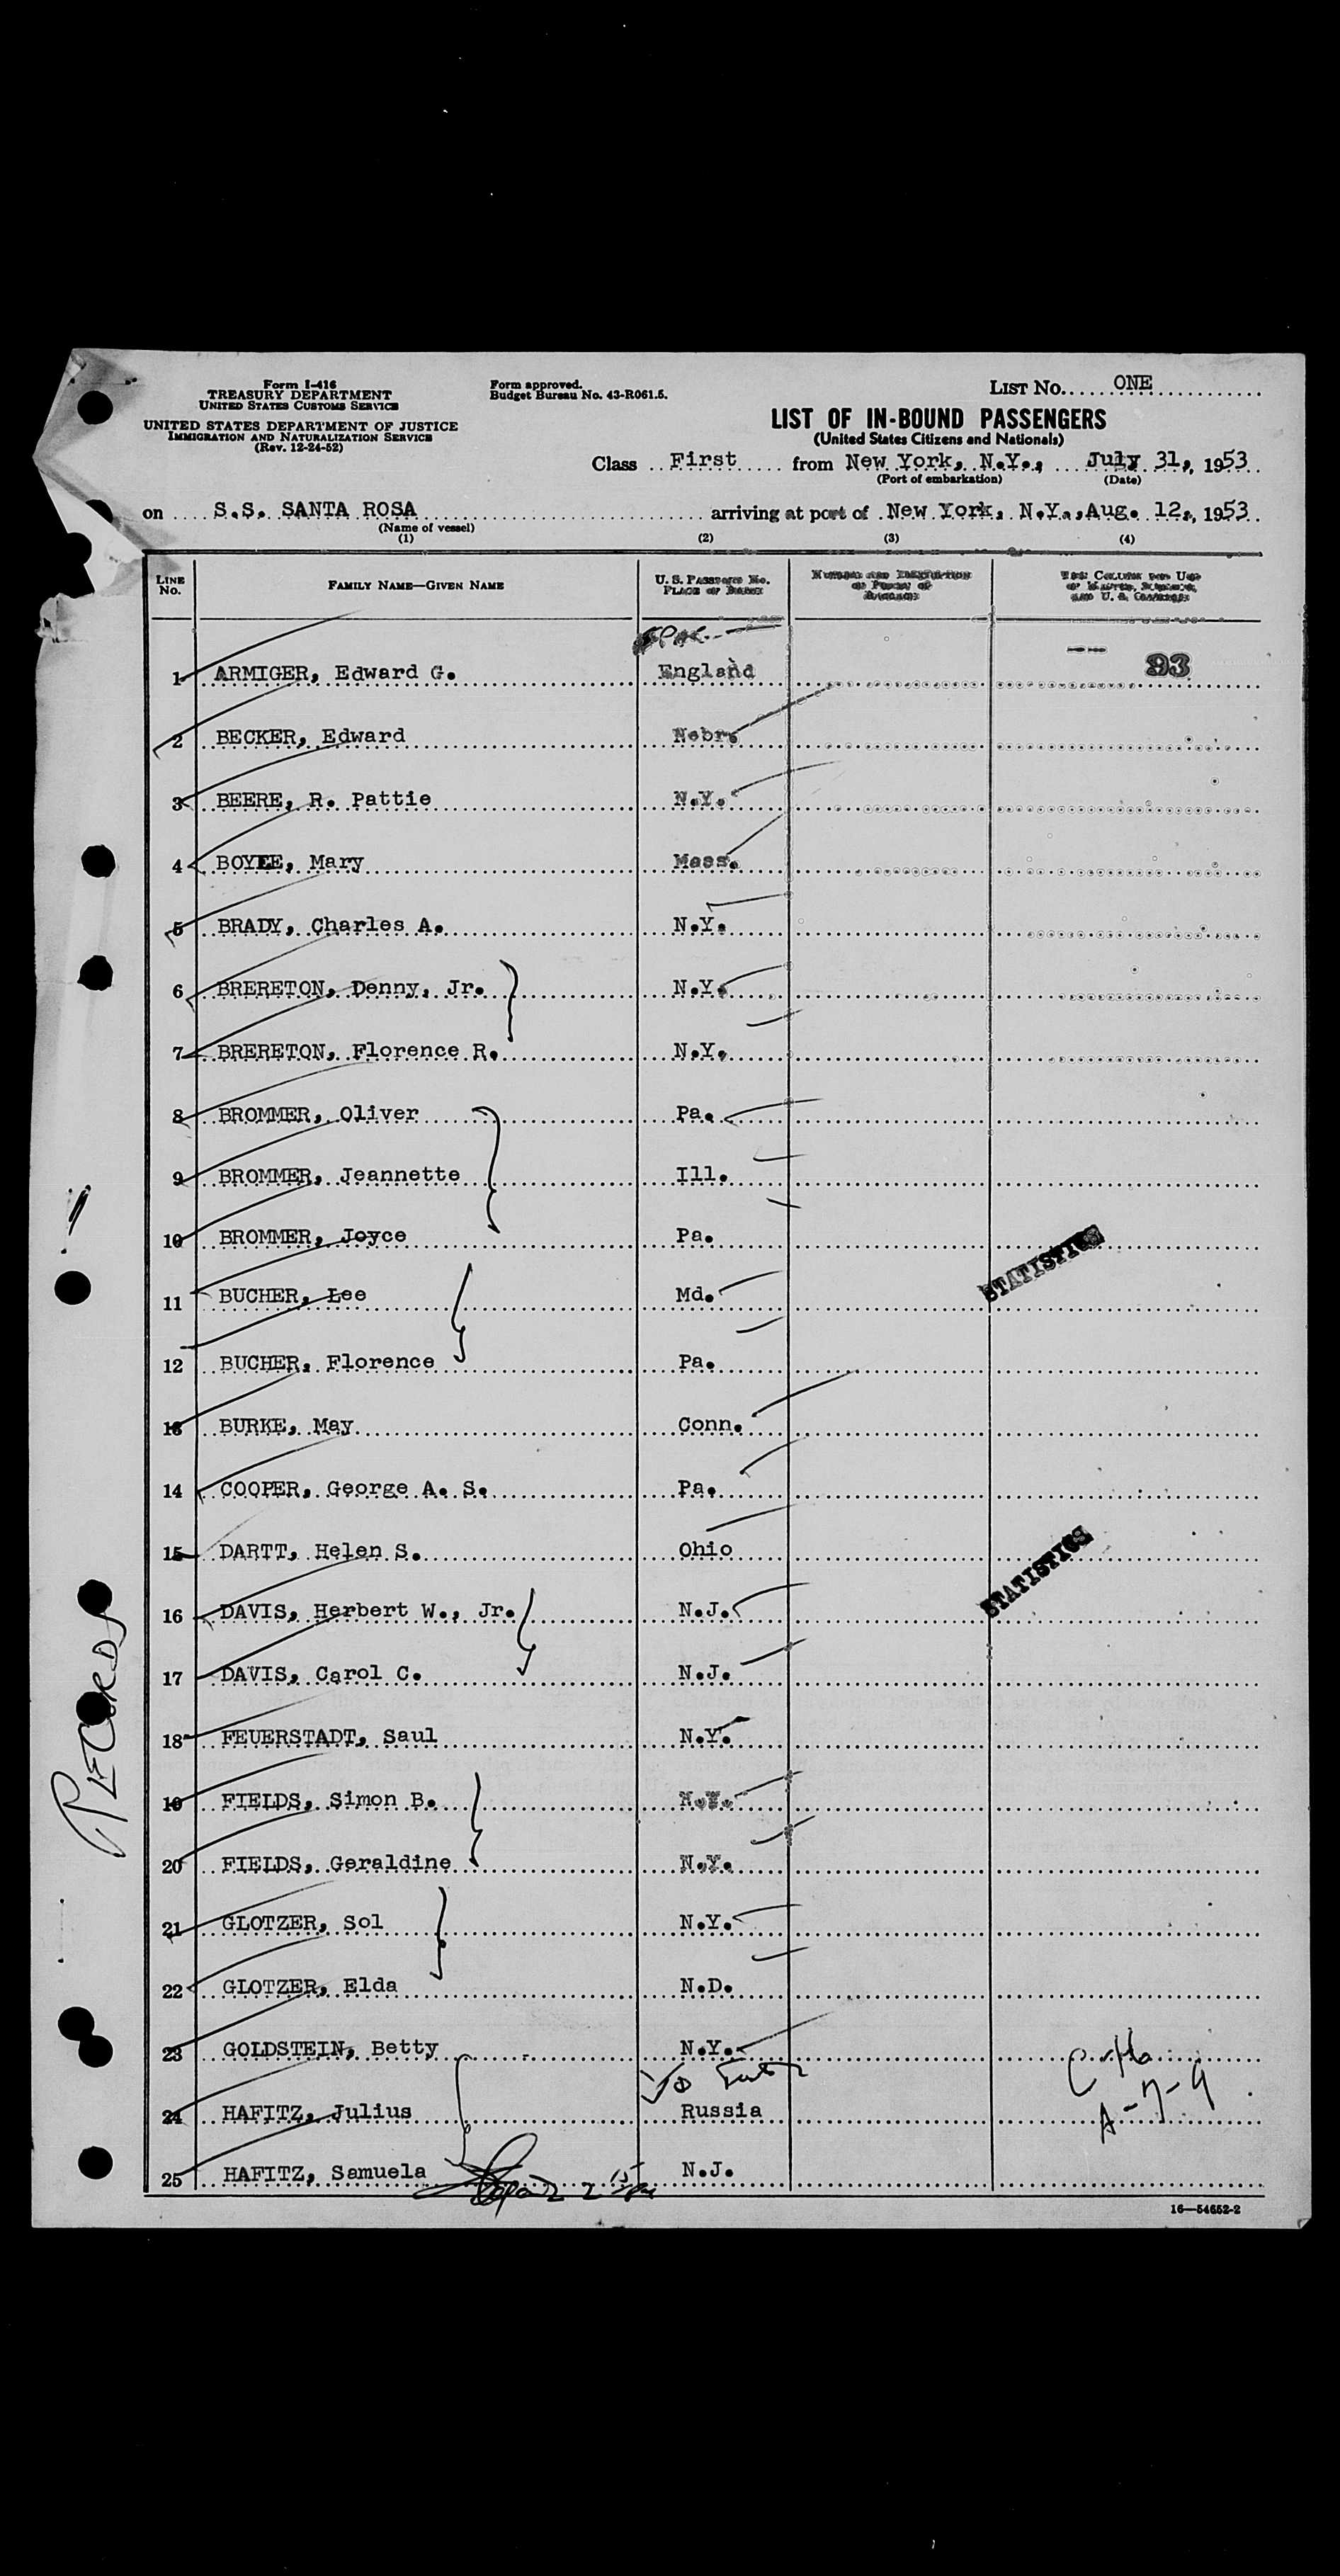 Form I-416
TREASURY DEPARTMENT
UNITED STATES CUSTOMS SERVICE
UNITED STATES DEPARTMENT OF JUSTICE
IMMIGRATION AND NATURALIZATION SERVICE
(Rev. 12-24-52)
Form approved.
Budget Bureau No. 43-R061.5.
LIST No. ONE
LIST OF IN-BOUND PASSENGERS
(United States Citizens and Nationals)
Class First from New York, N.Y., July 31, 1953
(Port of embarkation) (Date)
on S.S. SANTA ROSA arriving at port of New York, N.Y., Aug. 12, 1953
(Name of vessel)
(1) (2) (3) (4)
LINE No. FAMILY NAME—GIVEN NAME U. S. PASSPORT No. PLACE OF BIRTH NUMBER AND DESCRIPTION OF PIECES OF BAGGAGE THIS COLUMN FOR USE OF MASTER, SURGEON, AND U. S. OFFICERS
93
1 ARMIGER, Edward G. England
2 BECKER, Edward Nebr.
3 BEERE, R. Pattie N.Y.
4 BOYEE, Mary Mass.
5 BRADY, Charles A. N.Y.
6 BRERETON, Denny, Jr. N.Y.
7 BRERETON, Florence R. N.Y.
8 BROMMER, Oliver Pa.
9 BROMMER, Jeannette Ill.
10 BROMMER, Joyce Pa.
STATISTICS
11 BUCHER, Lee Md.
12 BUCHER, Florence Pa.
13 BURKE, May Conn.
14 COOPER, George A. S. Pa.
15 DARTT, Helen S. Ohio
STATISTICS
16 DAVIS, Herbert W., Jr. N.J.
17 DAVIS, Carol C. N.J.
18 FEUERSTADT, Saul N.Y.
19 FIELDS, Simon B. N.Y.
20 FIELDS, Geraldine N.Y.
21 GLOTZER, Sol N.Y.
22 GLOTZER, Elda N.D.
23 GOLDSTEIN, Betty N.Y.
24 HAFITZ, Julius Russia
A-7-9
25 HAFITZ, Samuela N.J.
16—54652-2
RECORDS